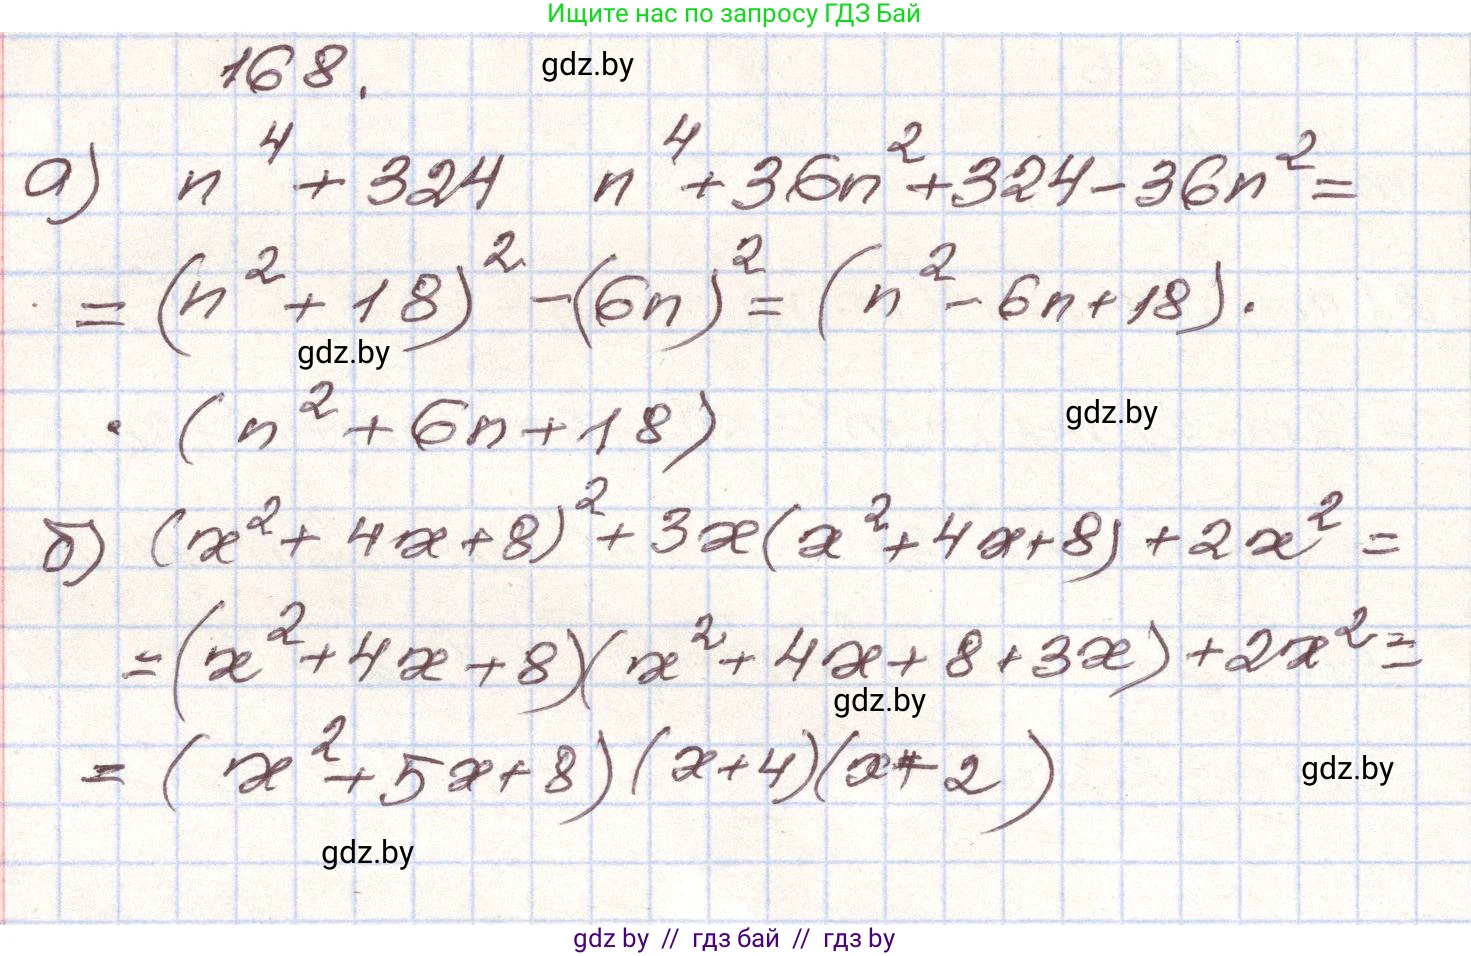 Ищите нас по запросу ГДЗ Бай
168.
gdz.by
а) n⁴ + 324 n⁴ + 36n² + 324 - 36n² =
= (n² + 18)² - (6n)² = (n² - 6n + 18) ·
gdz.by
· (n² + 6n + 18)
gdz.by
б) (x² + 4x + 8)² + 3x(x² + 4x + 8) + 2x² =
= (x² + 4x + 8)(x² + 4x + 8 + 3x) + 2x² =
gdz.by
= (x² + 5x + 8)(x + 4)(x + 2)
gdz.by
gdz.by
gdz by // гдз бай // гдз by